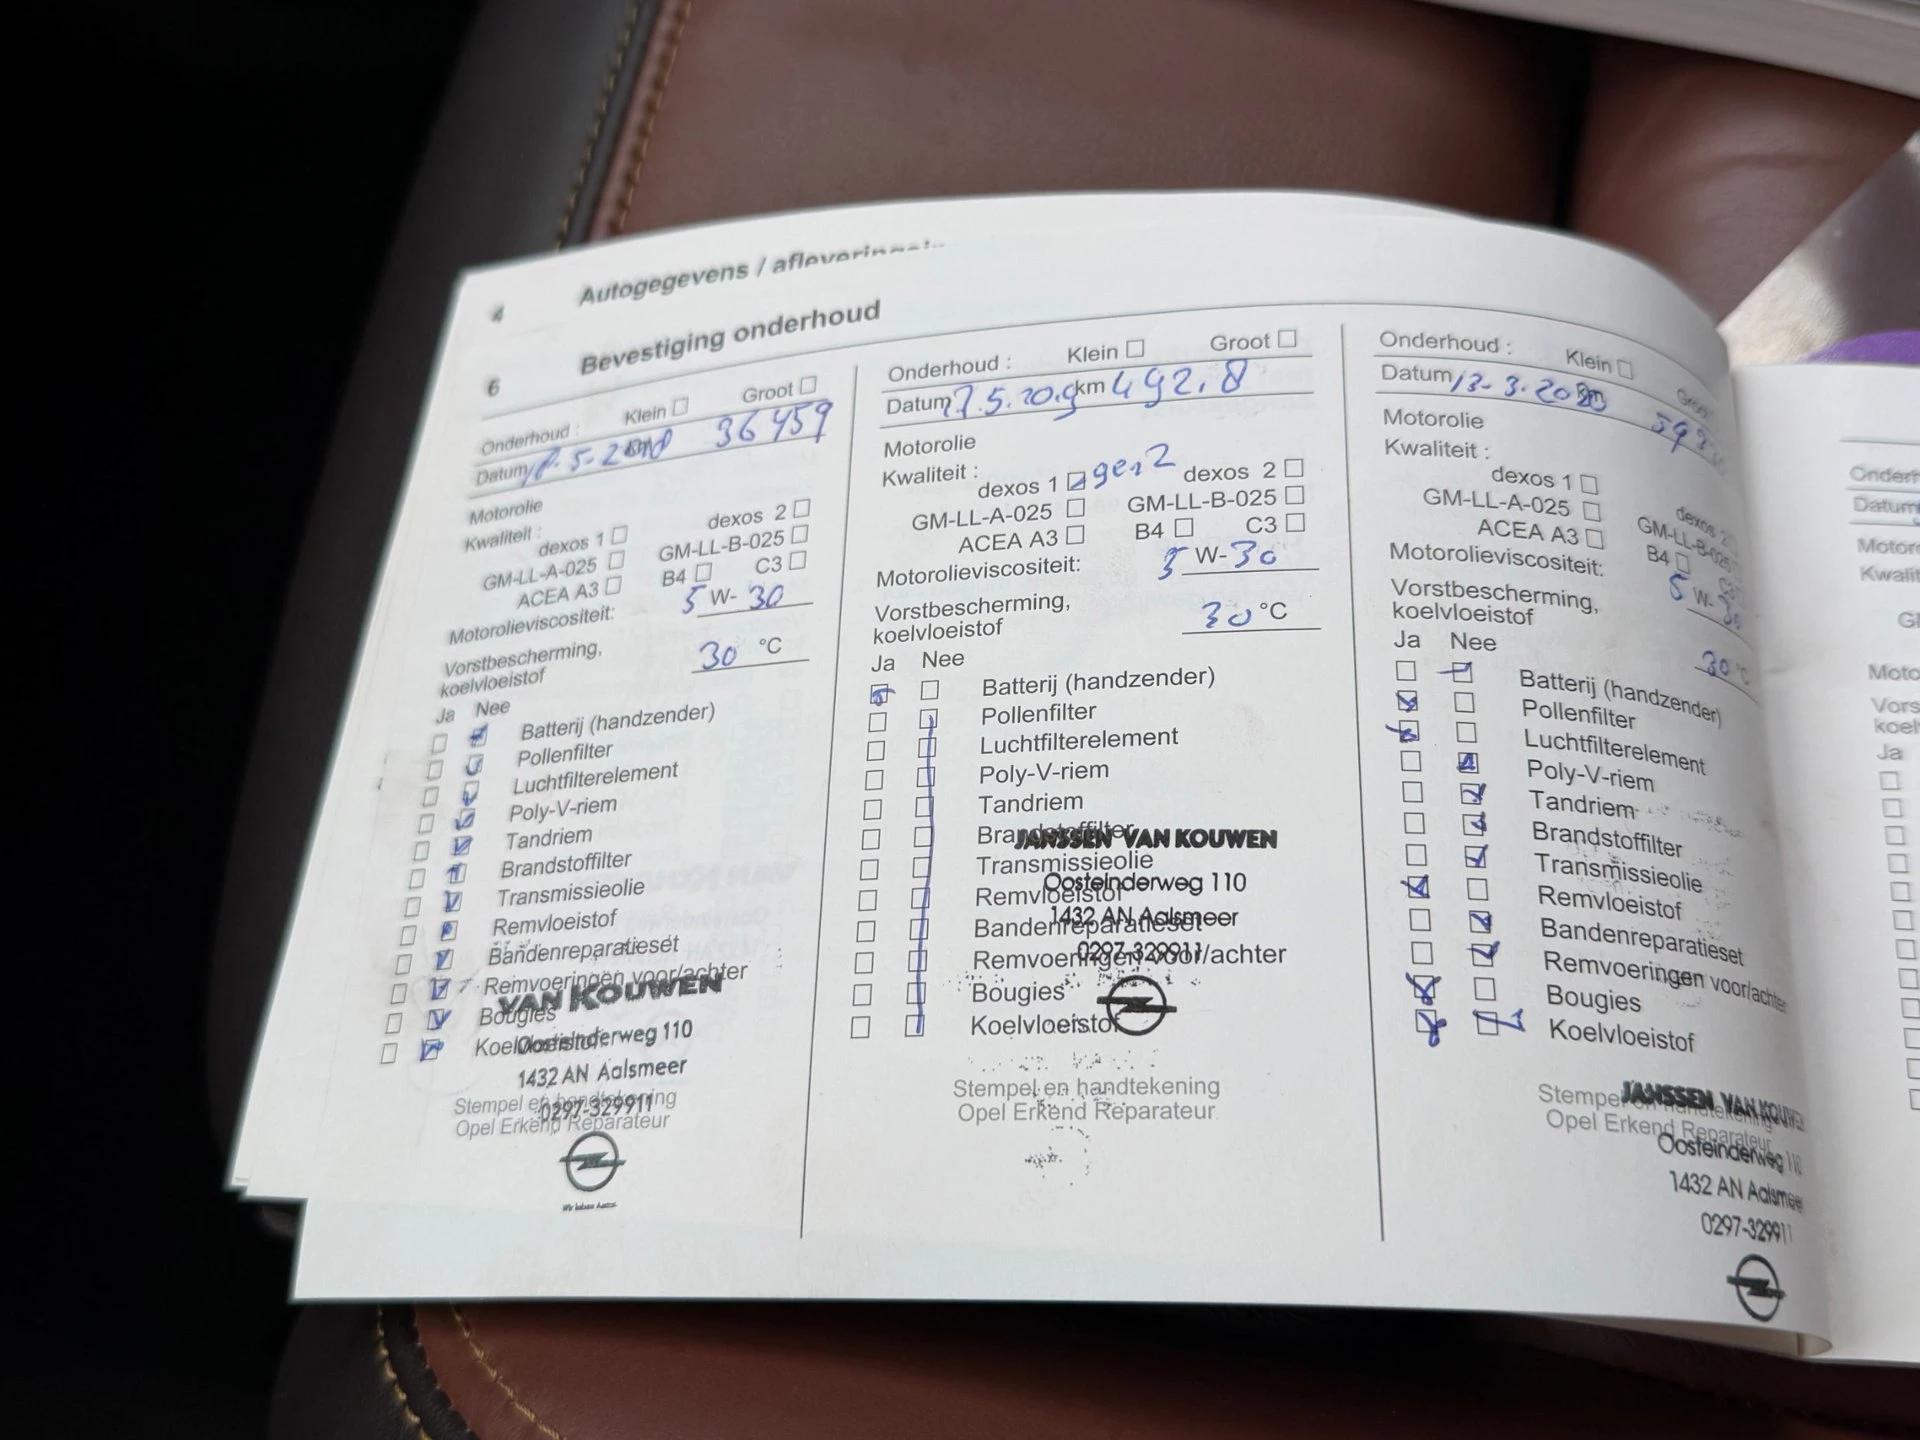 4 Autogegevens /
6 Bevestiging onderhoud
Onderhoud : Klein Groot
Datum 36459
Motorolie
Kwaliteit :
dexos 1 dexos 2
GM-LL-A-025 GM-LL-B-025
ACEA A3 B4 C3
Motorolieviscositeit: 5 W- 30
Vorstbescherming,
koelvloeistof 30 °C
Ja Nee
Batterij (handzender)
Pollenfilter
Luchtfilterelement
Poly-V-riem
Tandriem
Brandstoffilter
Transmissieolie
Remvloeistof
Bandenreparatieset
Remvoeringen voor/achter
Bougies
Koelvloeistof
VAN KOUWEN
Oosteinderweg 110
1432 AN Aalsmeer
0297-329911
Stempel en handtekening
Opel Erkend Reparateur
Onderhoud : Klein Groot
Datum km 492.8
Motorolie
Kwaliteit :
dexos 1 gen2 dexos 2
GM-LL-A-025 GM-LL-B-025
ACEA A3 B4 C3
Motorolieviscositeit: 5 W- 30
Vorstbescherming,
koelvloeistof 30 °C
Ja Nee
Batterij (handzender)
Pollenfilter
Luchtfilterelement
Poly-V-riem
Tandriem
Brandstoffilter
Transmissieolie
Remvloeistof
Bandenreparatieset
Remvoeringen voor/achter
Bougies
Koelvloeistof
JANSSEN VAN KOUWEN
Oosteinderweg 110
1432 AN Aalsmeer
0297-329911
Stempel en handtekening
Opel Erkend Reparateur
Onderhoud : Klein Groot
Datum 13-3-2020
Motorolie
Kwaliteit :
dexos 1 dexos 2
GM-LL-A-025 GM-LL-B-025
ACEA A3 B4
Motorolieviscositeit: 5 W- 30
Vorstbescherming,
koelvloeistof 30 °C
Ja Nee
Batterij (handzender)
Pollenfilter
Luchtfilterelement
Poly-V-riem
Tandriem
Brandstoffilter
Transmissieolie
Remvloeistof
Bandenreparatieset
Remvoeringen voor/achter
Bougies
Koelvloeistof
Stempel en handtekening
Opel Erkend Reparateur
JANSSEN VAN KOUWEN
Oosteinderweg 110
1432 AN Aalsmeer
0297-329911
Datum
Ja